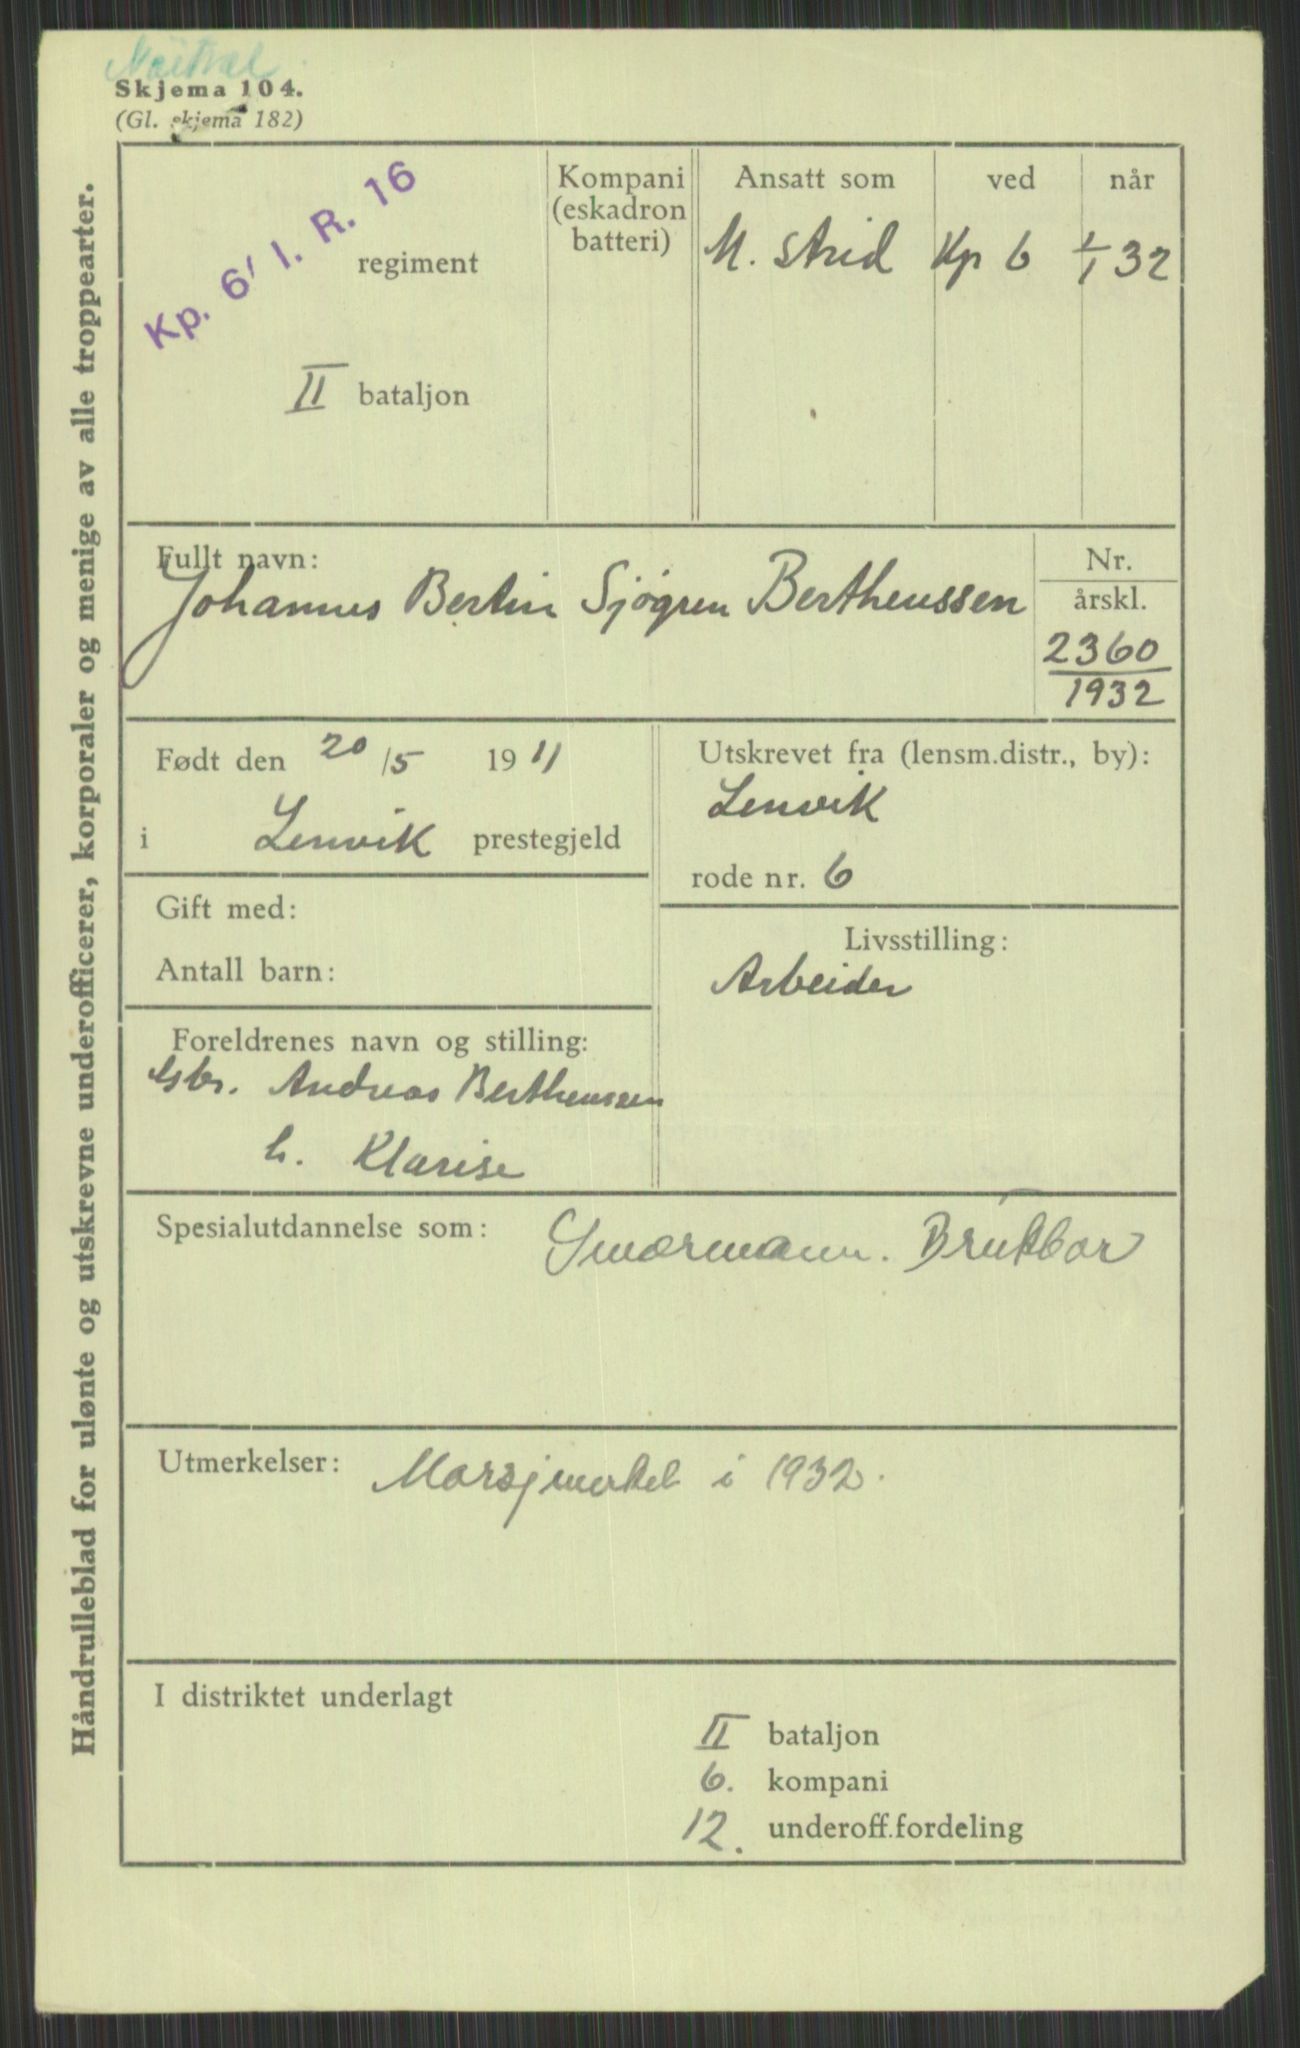 Nøitral
Skjema 104.
(Gl. skjema 182)
Håndrulleblad for ulønte og utskrevne underofficerer, korporaler og menige av alle troppearter.
Kp. 6/ I. R. 16
regiment
II bataljon
Kompani
(eskadron
batteri)
Ansatt som
M. strid
ved
Kp 6
når
1/1 32
Fullt navn:
Johannes Bertin Sjøgren Bertheussen
Nr.
årskl.
2360
1932
Født den 20/5 1911
i Lenvik prestegjeld
Utskrevet fra (lensm.distr., by):
Lenvik
rode nr. 6
Gift med:
Antall barn:
Livsstilling:
Arbeider
Foreldrenes navn og stilling:
Gbr. Andreas Bertheussen
h. Klarise
Spesialutdannelse som: Smørmann. Brukbar
Utmerkelser: Marsjmerket i 1932.
I distriktet underlagt
II bataljon
6. kompani
12. underoff.fordeling